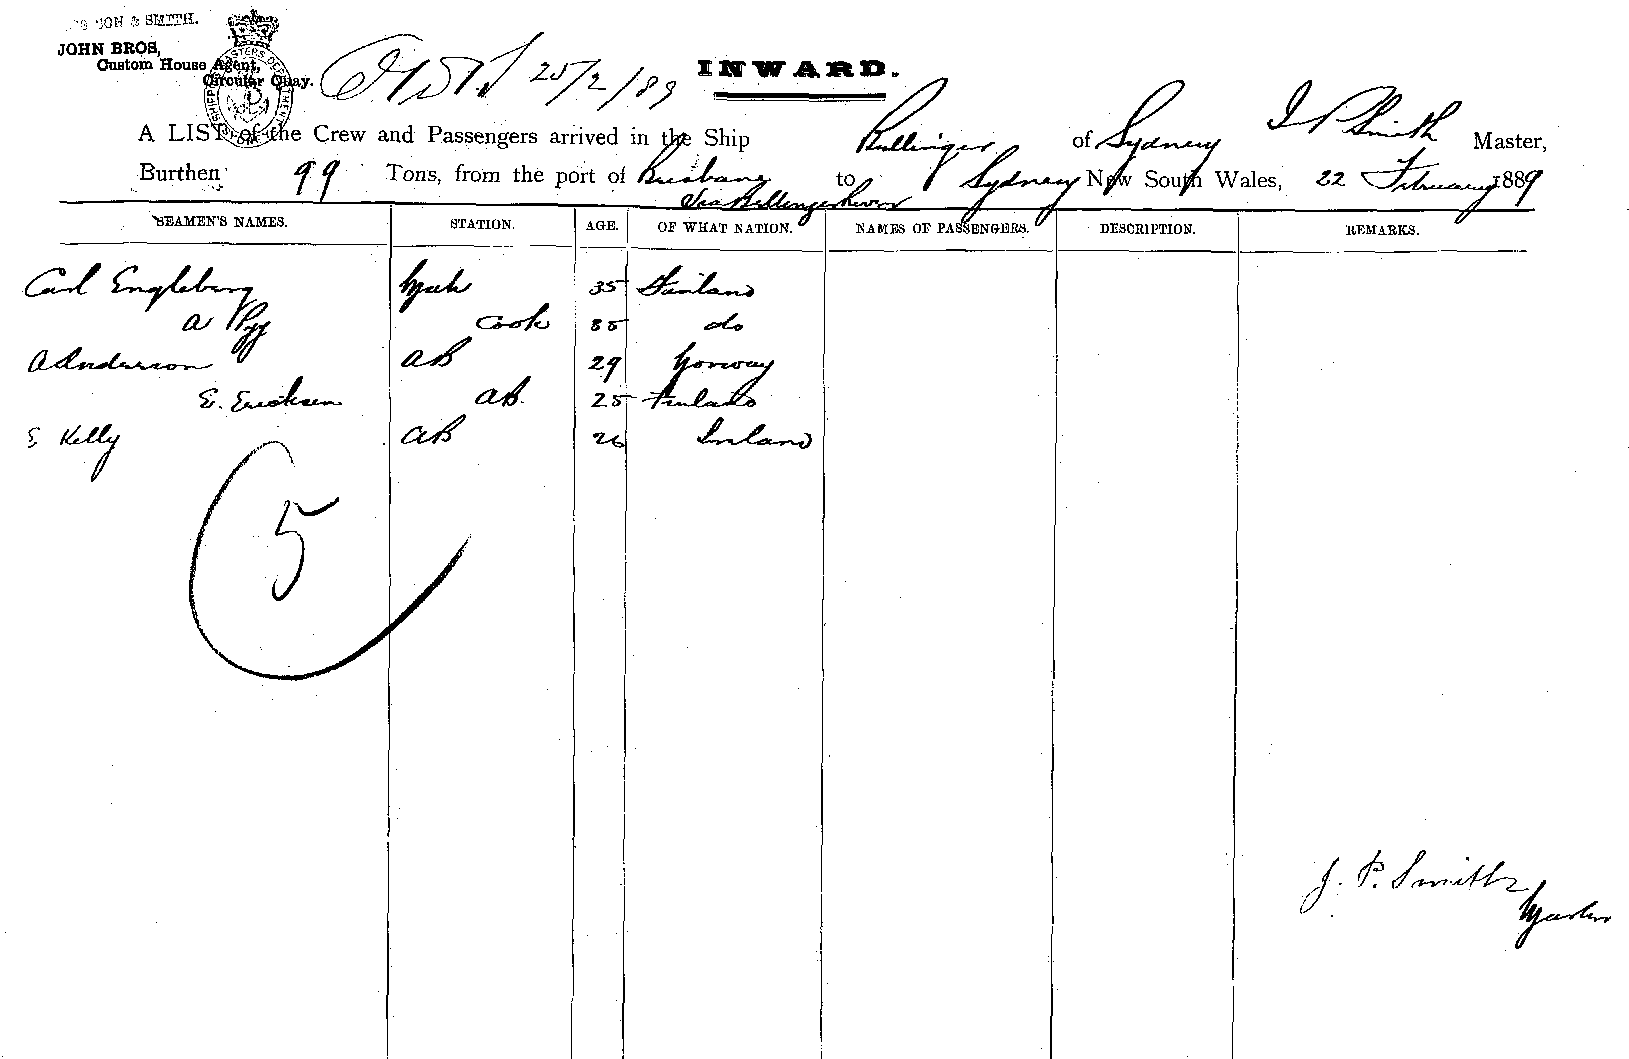 SON & SMITH.
JOHN BROS,
Custom House Agent,
Circular Quay.
25/2/89
INWARD.
A LIST of the Crew and Passengers arrived in the Ship Bellinger of Sydney J P Smith Master,
Burthen 99 Tons, from the port of Brisbane to Sydney New South Wales, 22 February 1889
via Bellinger River
SEAMEN'S NAMES. STATION. AGE. OF WHAT NATION. NAMES OF PASSENGERS. DESCRIPTION. REMARKS.
Carl Engleberg Mate 35 Finland
A Pyy Cook 35 do
A Anderson AB 29 Norway
E. Ericksen AB. 25 Finland
E Kelly AB 26 Ireland
5
J. P. Smith
Master